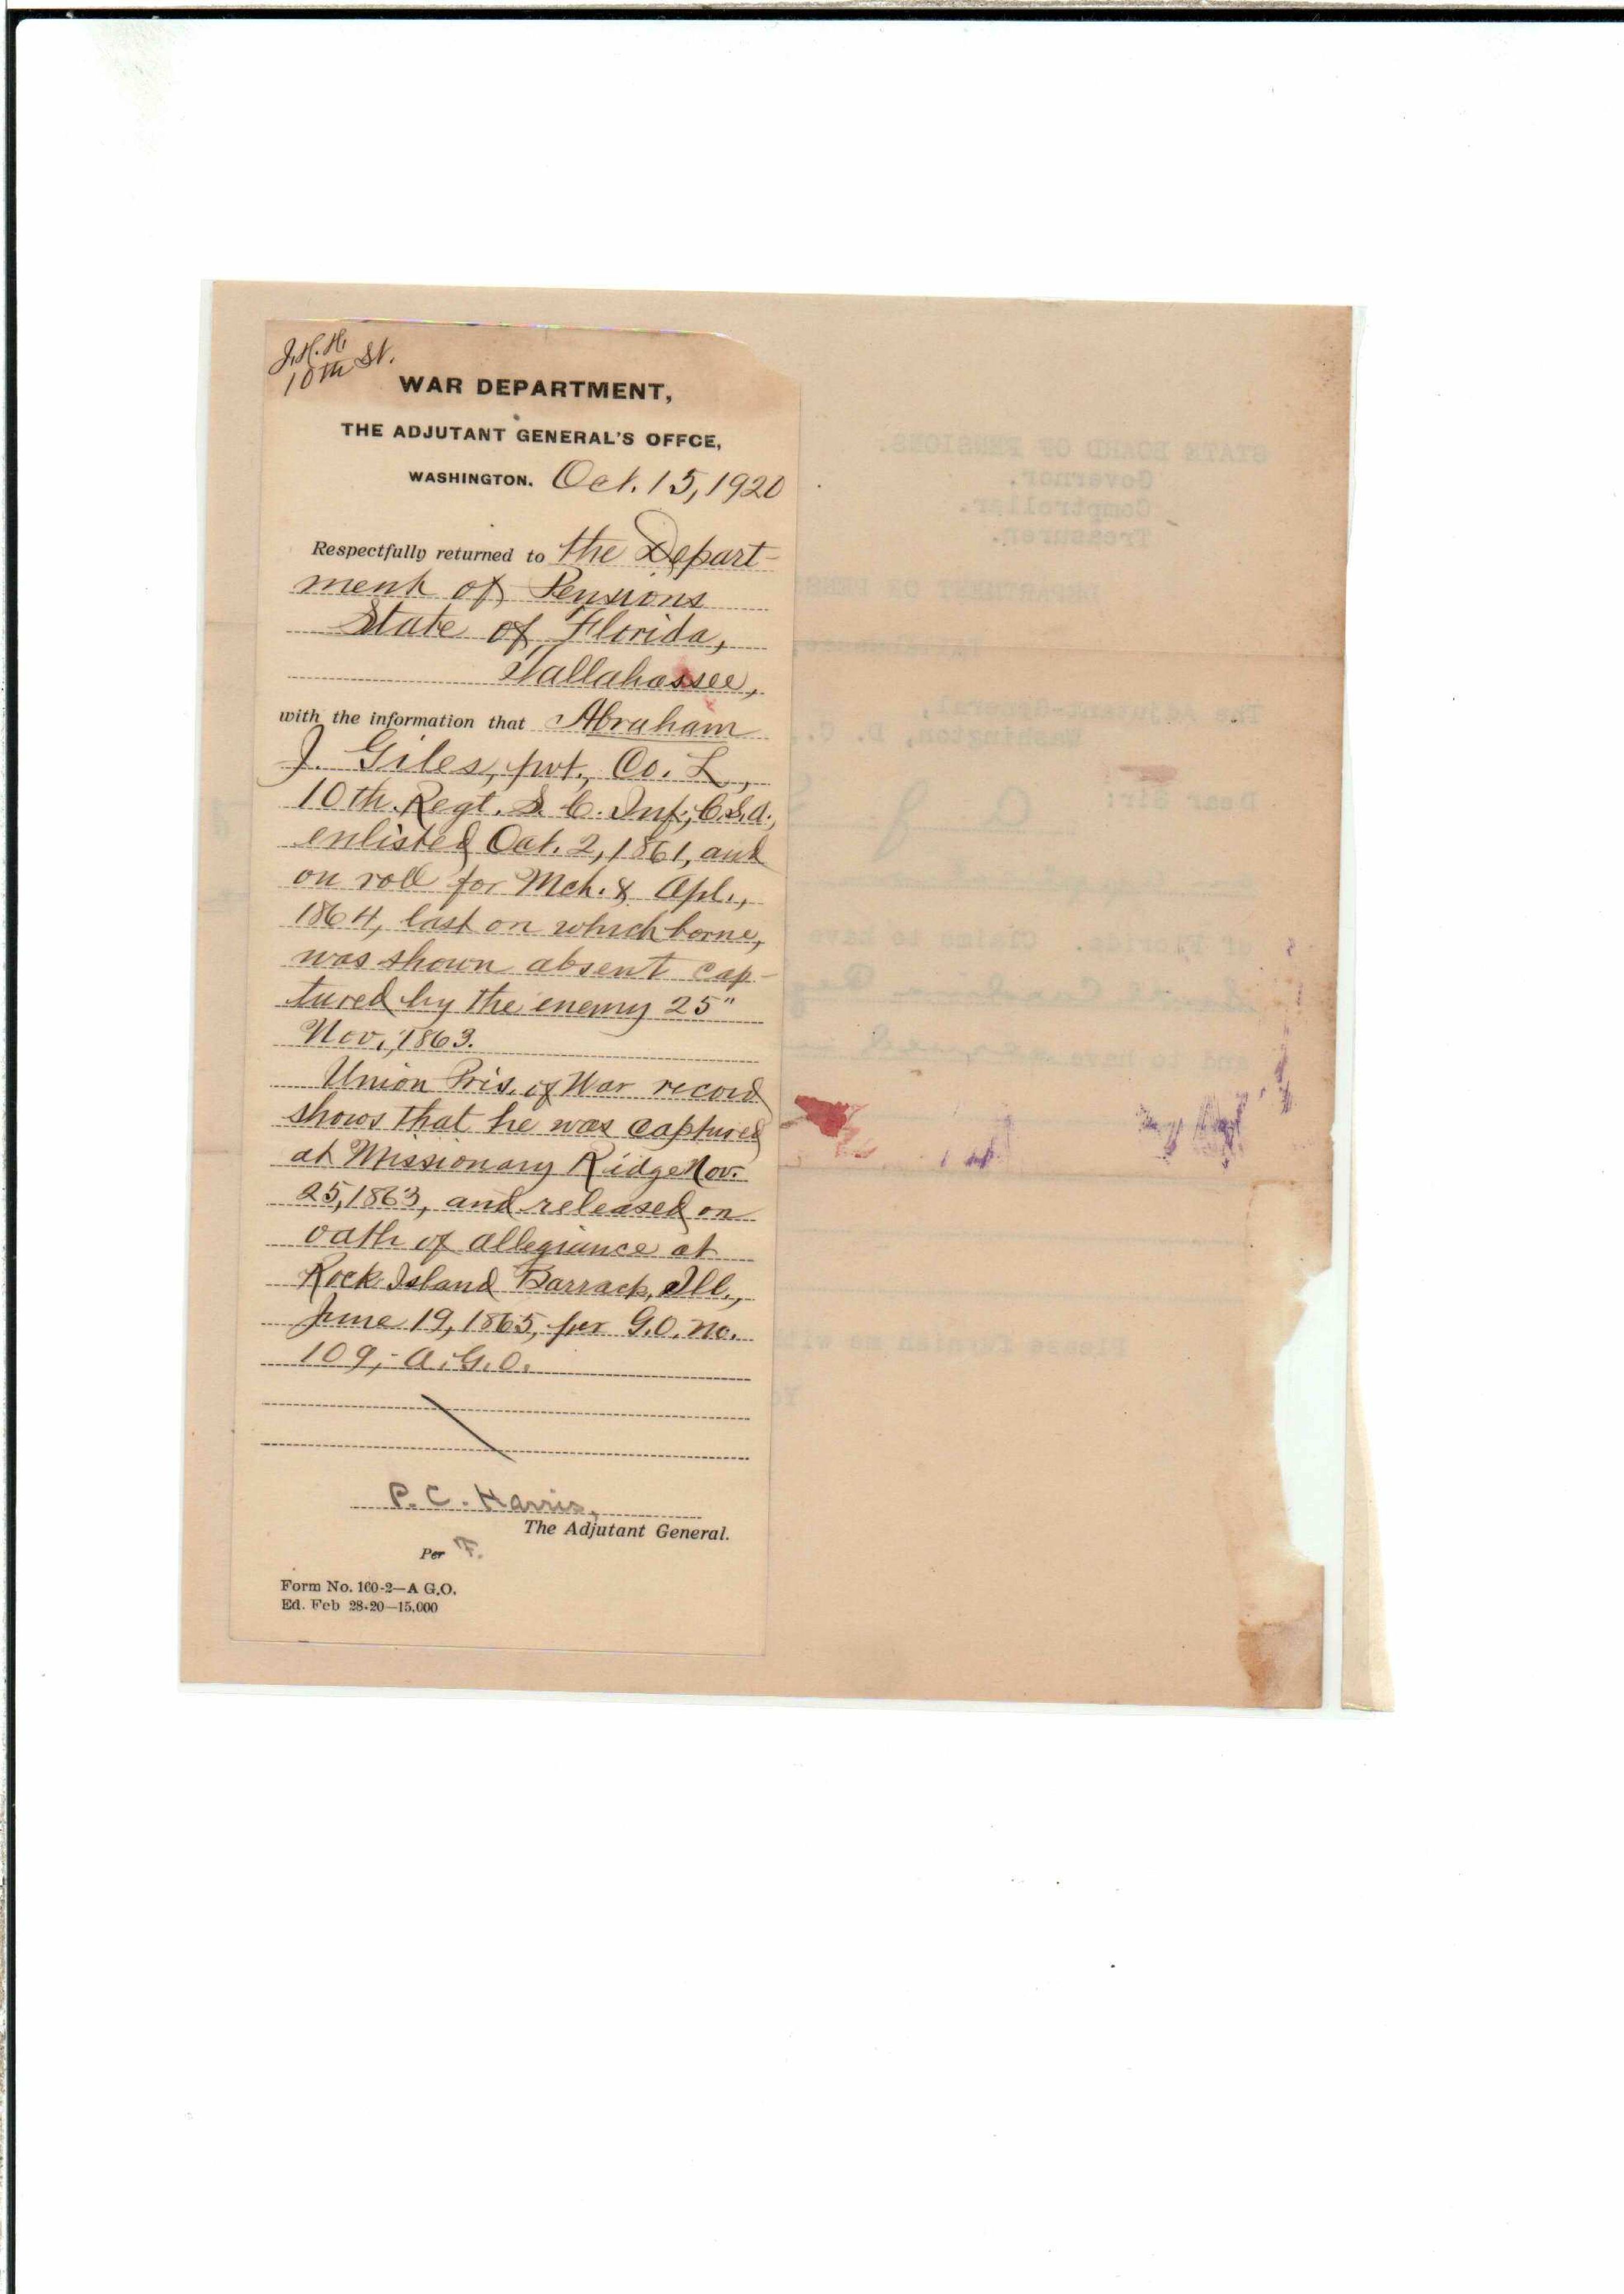 J.H.H.
10th St.
WAR DEPARTMENT,
THE ADJUTANT GENERAL'S OFFCE,
WASHINGTON. Oct. 15, 1920
Respectfully returned to the Depart-
ment of Pensions
State of Florida,
Tallahassee,
with the information that Abraham
J. Giles, pvt., Co. L,
10th Regt. S. C. Inf., C.S.A.,
enlisted Oct. 2, 1861, and
on roll for Mch. & Apl.,
1864, last on which borne,
was shown absent cap-
tured by the enemy 25"
Nov., 1863.
Union Pris. of War record
shows that he was captured
at Missionary Ridge Nov.
25, 1863, and released on
oath of allegiance at
Rock Island Barracks, Ill.,
June 19, 1865, per G.O. no.
109,- A.G.O.
P. C. Harris,
The Adjutant General.
Per F.
Form No. 160-2—A G.O.
Ed. Feb 28-20—15.000
STATE BOARD OF PENSIONS.
Governor.
Comptroller.
Treasurer.
DEPARTMENT OF PENS
The Adjutant-General,
Washington, D. C.,
Dear Sir:
A. J.
of Florida. Claims to have
and to have
Please furnish me wit
Yo